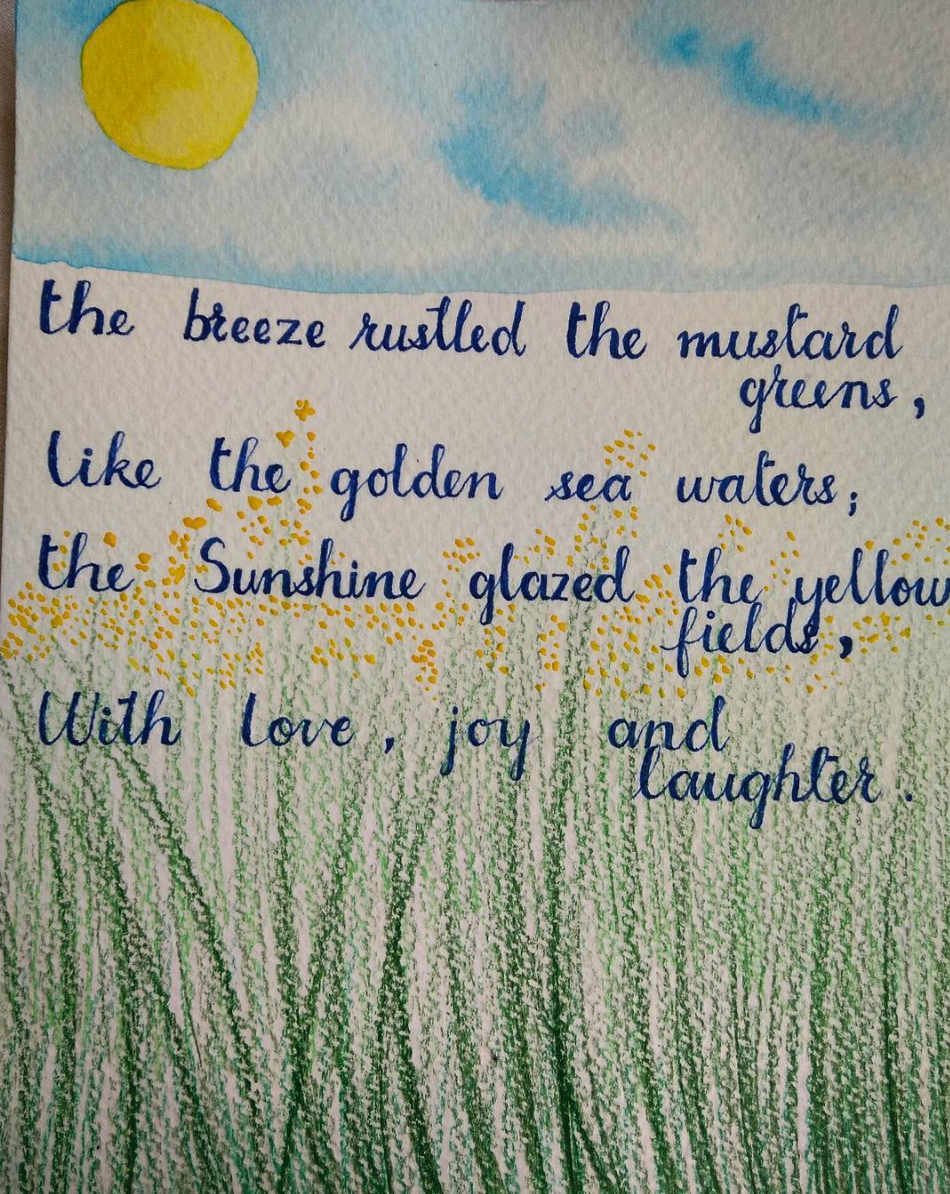 the breeze rustled the mustard
greens,
like the golden sea waters;
the Sunshine glazed the yellow
fields,
With love, joy and
laughter.